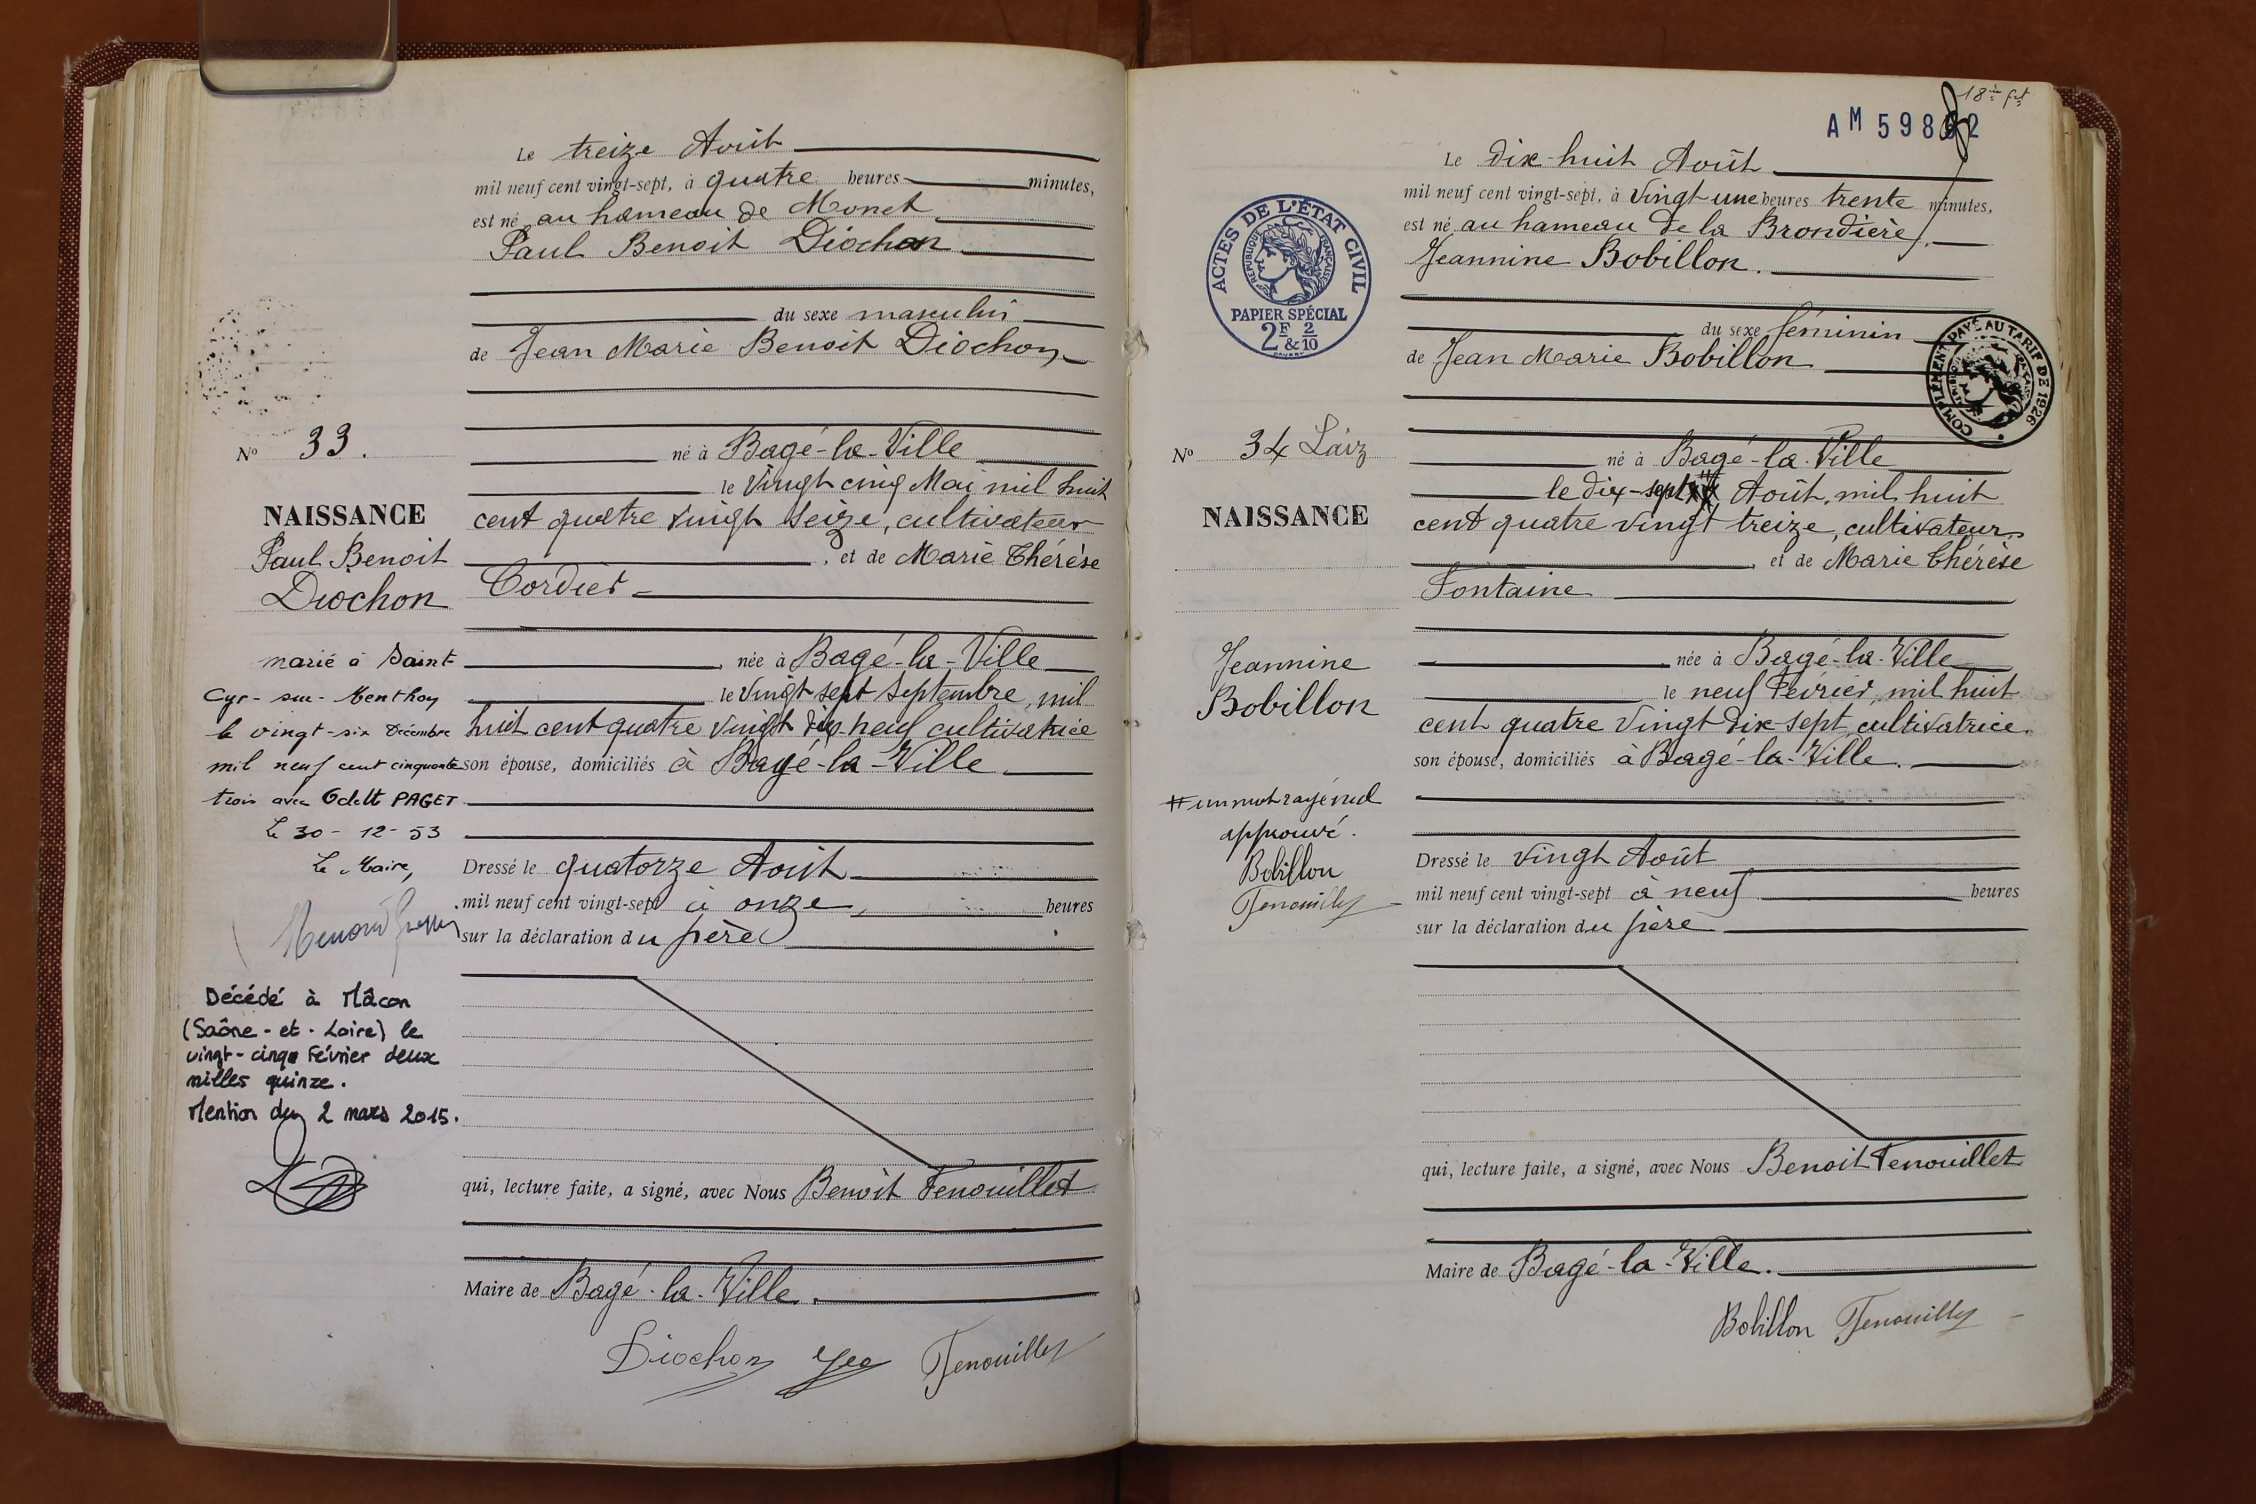 Le treize Août
mil neuf cent vingt-sept, à quatre heures minutes,
est né au hameau de Monet
Paul Benoit Diochon
du sexe masculin
de Jean Marie Benoit Diochon
né à Bagé-la-Ville
le Vingt cinq Mai mil huit
cent quatre vingt seize, cultivateur
, et de Marie Thérèse
Cordier
, née à Bagé-la-Ville
le Vingt sept Septembre, mil
huit cent quatre vingt dix-neuf cultivatrice
son épouse, domiciliés à Bagé-la-Ville
Dressé le quatorze Août
mil neuf cent vingt-sept à onze heures
sur la déclaration du père
qui, lecture faite, a signé, avec Nous Benoit Fenouillet
Maire de Bagé-la-Ville.
Diochon Fenouillet
No 33.
NAISSANCE
Paul Benoit
Diochon
marié à Saint
Cyr-sur-Menthon
le vingt-six Décembre
mil neuf cent cinquante
trois avec Odette PAGET
Le 30-12-53
Le Maire,
Décédé à Mâcon
(Saône-et-Loire) le
vingt-cinq Février deux
milles quinze.
Mention du 2 mars 2015.
18è fet
AM 598 2
Le Dix-huit Août
mil neuf cent vingt-sept, à Vingt une heures trente minutes,
est né au hameau de la Brondière,
Jeannine Bobillon.
du sexe féminin
de Jean Marie Bobillon
né à Bagé-la-Ville
le dix-sept Août, mil huit
cent quatre vingt treize, cultivateur,
, et de Marie Thérèse
Fontaine
née à Bagé-la-Ville
le neuf Février, mil huit
cent quatre Vingt Dix sept cultivatrice.
son épouse, domiciliés à Bagé-la-Ville.
Dressé le Vingt Août
mil neuf cent vingt-sept à neuf heures
sur la déclaration du père
qui, lecture faite, a signé, avec Nous Benoit Fenouillet
Maire de Bagé-la-Ville.
Bobillon Fenouillet
ACTES DE L'ÉTAT CIVIL
RÉPUBLIQUE FRANÇAISE
PAPIER SPÉCIAL
2F & 2/10
COMPLÉMENT PAYÉ AU TARIF DE 1926
No 34 Laiz
NAISSANCE
Jeannine
Bobillon
# un mot rayé nul
approuvé.
Bobillon
Fenouillet